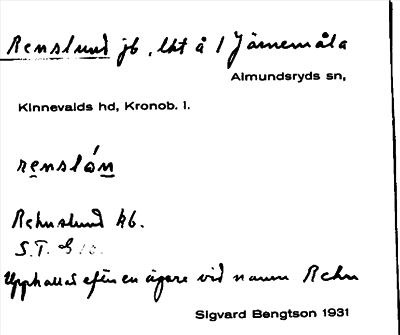 Renslund jb, lht å 1 Järnemåla
Almundsryds sn,
Kinnevalds hd, Kronob. l.
renslón
Rehnslund hb.
S.T.
Upphallas efter en ägare vid namn Rehn
Sigvard Bengtson 1931